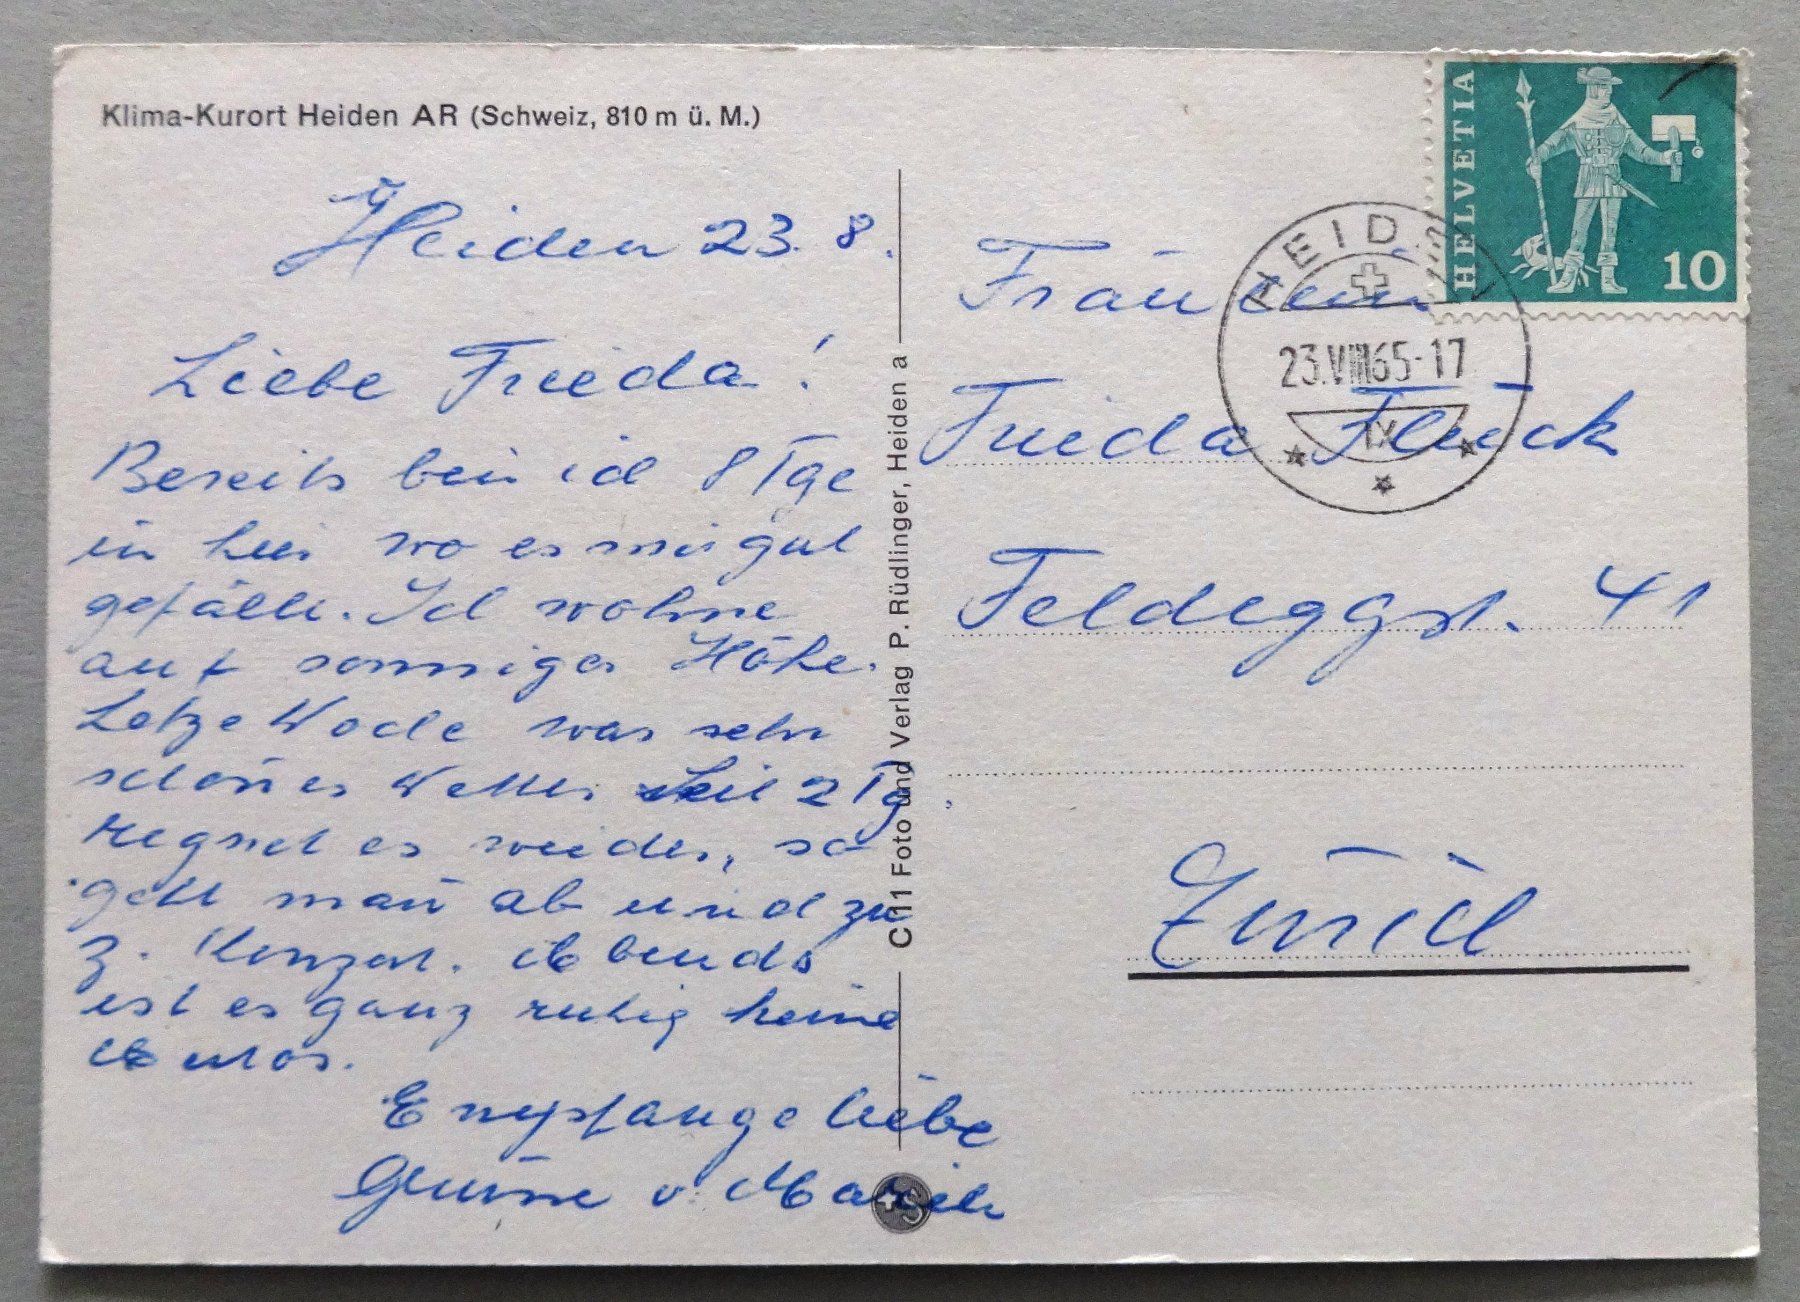 Klima-Kurort Heiden AR (Schweiz, 810 m ü. M.)
Heiden 23. 8.
Liebe Frieda!
Bereits bein ich 8 Tge
in hier wo es mir gut
gefällt. Ich wohne
auf sonniger Höhe.
Letze Woche war sehr
schönes Wetter. Seit 2 Tg.
regnet es wieder, so
geht man ab und zu
z. Konzert. Abends
ist es ganz ruhig keine
Autos.
Empfange liebe
Grüsse v.
C 11 Foto und Verlag P. Rüdlinger, Heiden a
HELVETIA
10
HEIDEN
23.VIII.65-17
Fräulein
Frieda Flück
Feldeggst. 41
Zürich